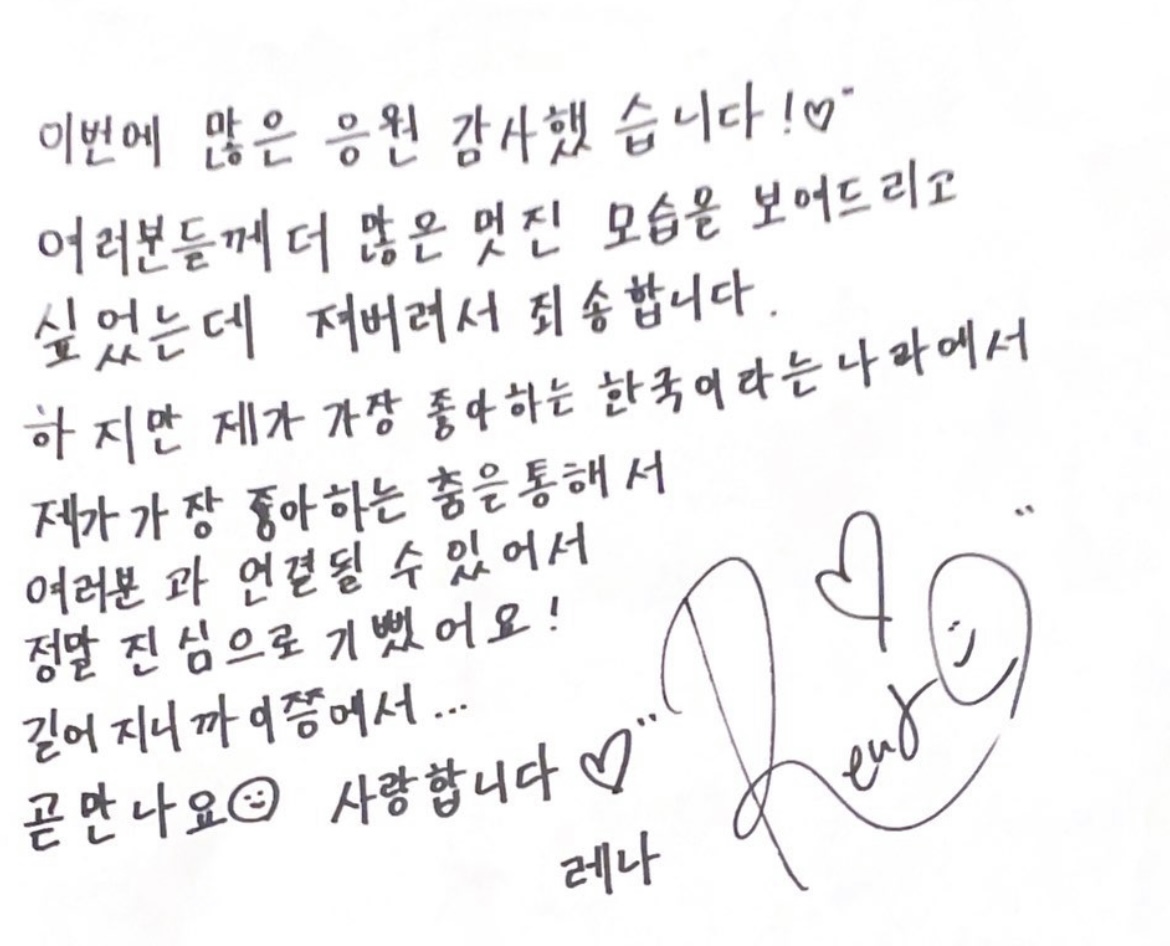 이번에 많은 응원 감사했습니다!♡
여러분들께 더 많은 멋진 모습을 보여드리고
싶었는데 져버려서 죄송합니다.
하지만 제가 가장 좋아하는 한국이라는 나라에서
제가 가장 좋아하는 춤을 통해서
여러분과 연결될 수 있어서
정말 진심으로 기뻤어요!
길어지니까 이쯤에서...
곧 만나요☺ 사랑합니다♡
레나
Rena